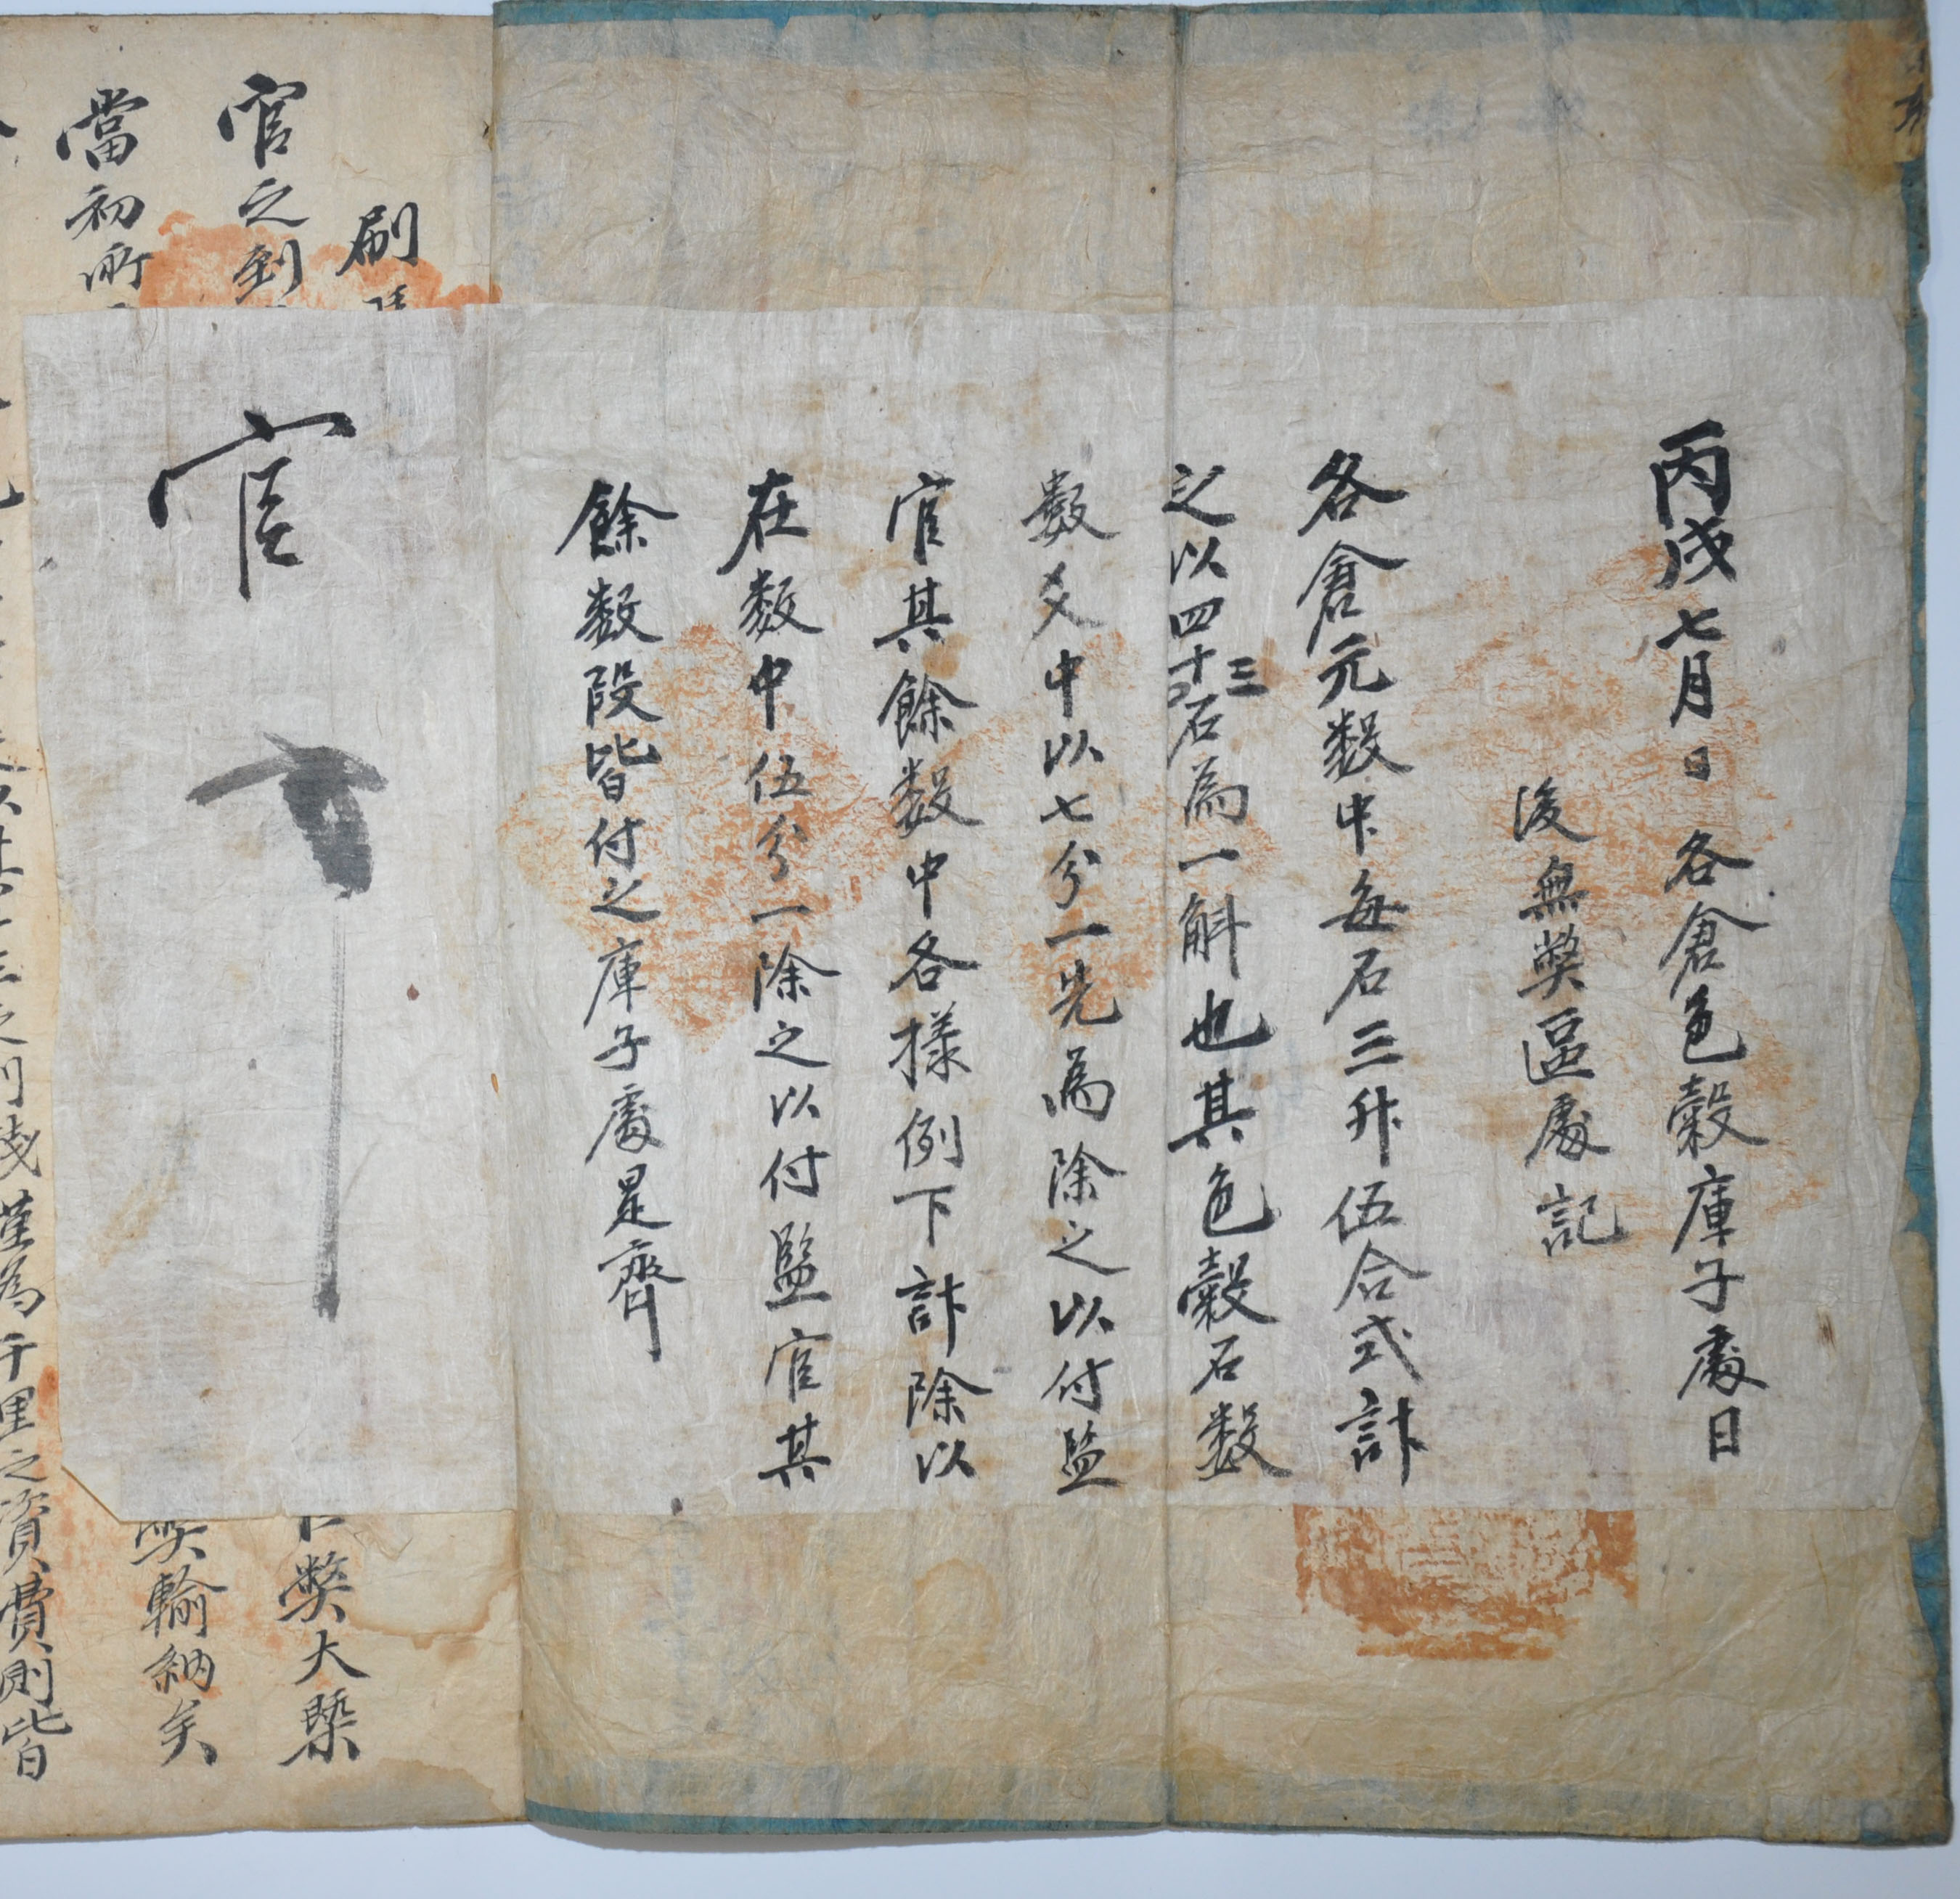 丙戌七月日各倉色穀庫子處日
後無獘區處記
各倉元数中每石三升伍合式計
之以四十三石爲一斛也其色穀石数
數爻中以七分一先爲除之以付監
官其餘数中各樣例下計除以
在数中伍分一除之以付監官其
餘数段皆付之庫子處是齊
官
刷
官之到
當初所
獘大槩
獘輸納矣
之刂戔僅爲千里之資費則皆